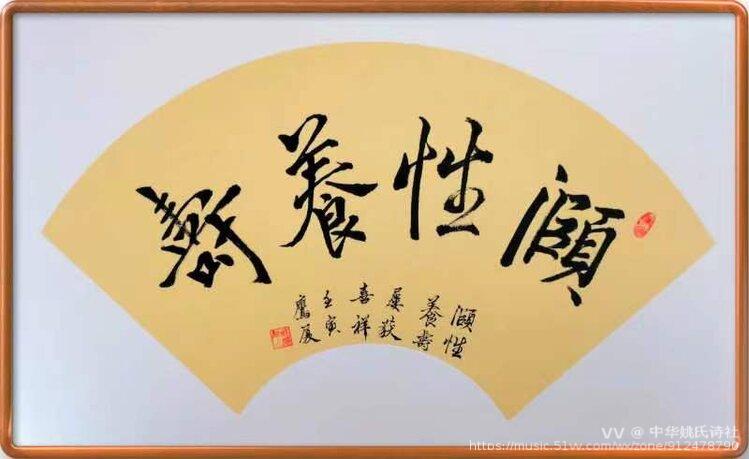 頤性養壽
頤性
養壽
屢获
喜祥
壬寅
鷹厦
VV @ 中华姚氏诗社
https://music.51vv.com/wx/zone/912478790